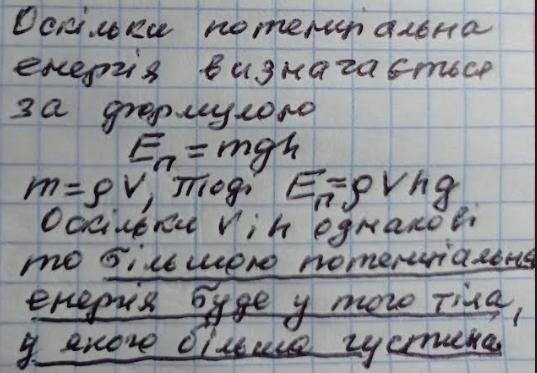 Оскільки потенціальна
енергія визначається
за формулою
Eп = mgh
m = ρV, тоді Eп = ρVhg
Оскільки V і h однакові
то більшою потенціальна
енергія буде у того тіла,
у якого більша густина.